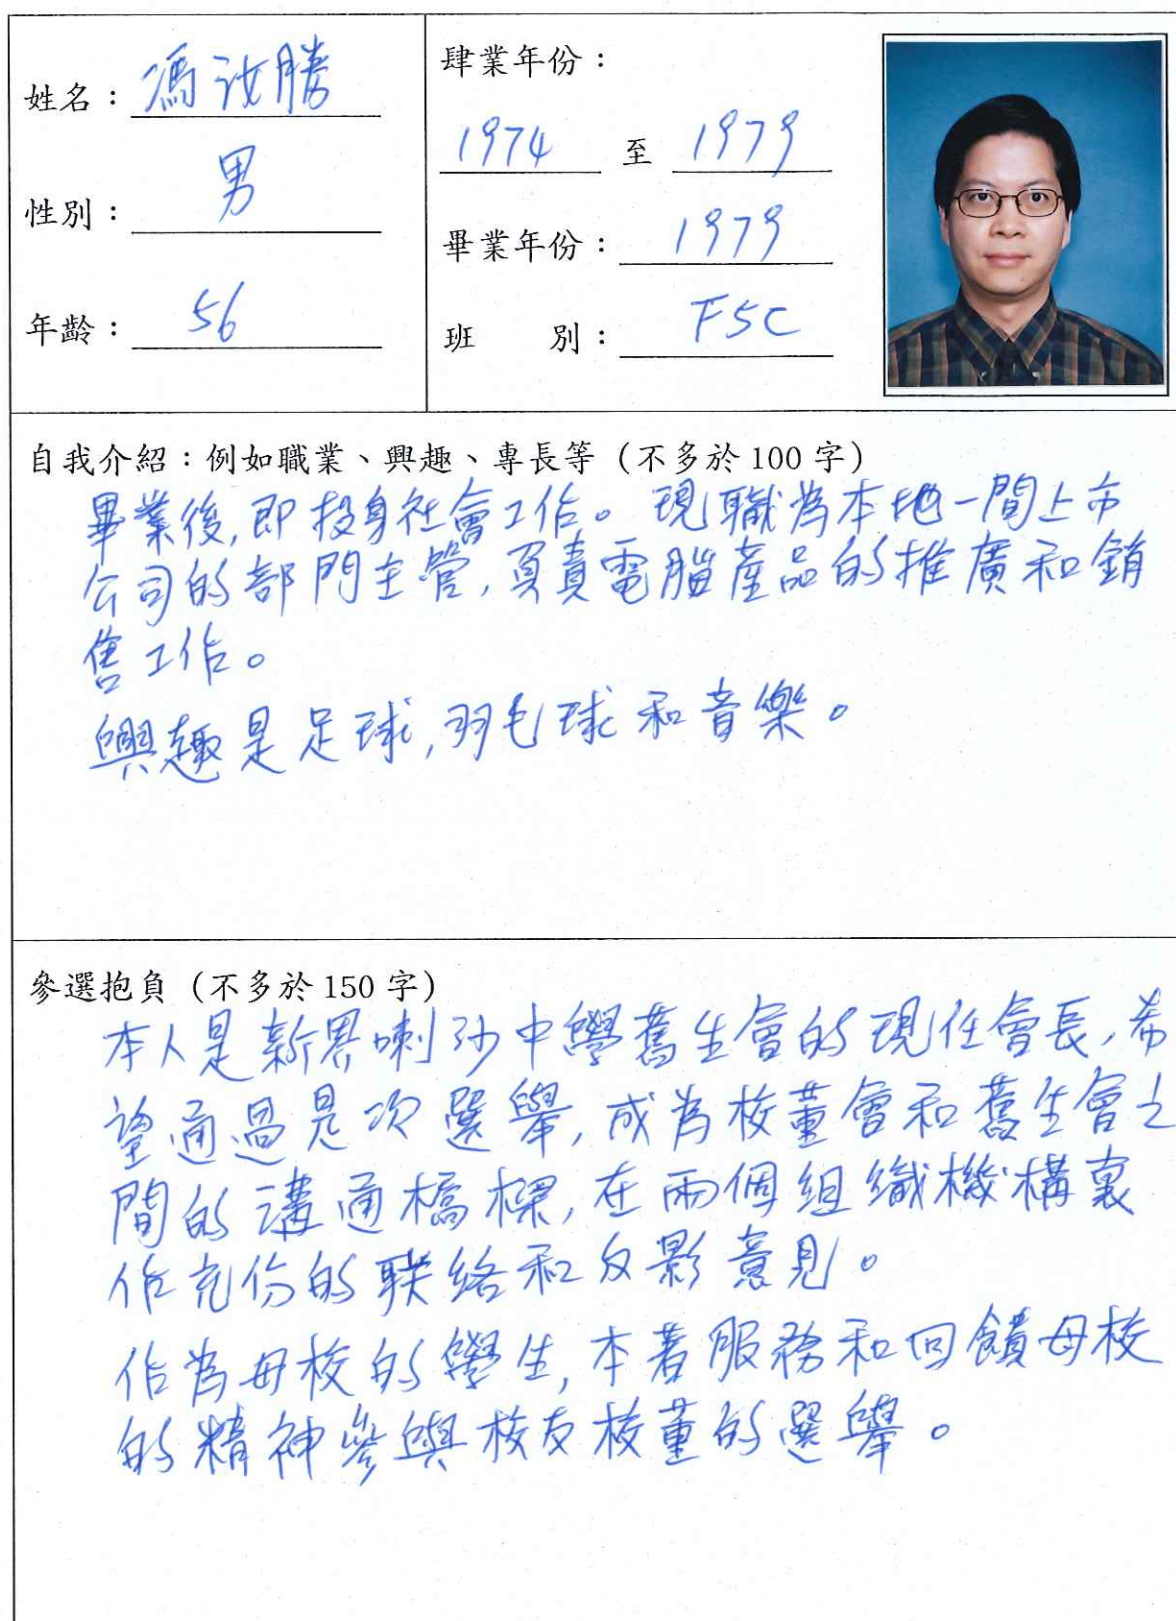 姓名：馮汝勝
性別：男
年齡：56
肄業年份：
1974 至 1979
畢業年份：1979
班 別：F5C
自我介紹：例如職業、興趣、專長等（不多於100字）
畢業後,即投身社會工作。現職為本地一間上市
公司的部門主管,負責電腦產品的推廣和銷
售工作。
興趣是足球,羽毛球和音樂。
參選抱負（不多於150字）
本人是新界喇沙中學舊生會的現任會長,希
望通過是次選舉,成為校董會和舊生會之
間的溝通橋樑,在兩個組織機構裏
作充份的聯絡和反影意見。
作為母校的學生,本着服務和回饋母校
的精神參與校友校董的選舉。